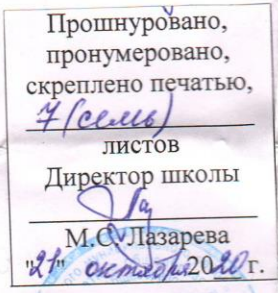 Прошнуровано,
пронумеровано,
скреплено печатью,
7 (семь)
листов
Директор школы
М.С. Лазарева
"21" октября 2020 г.